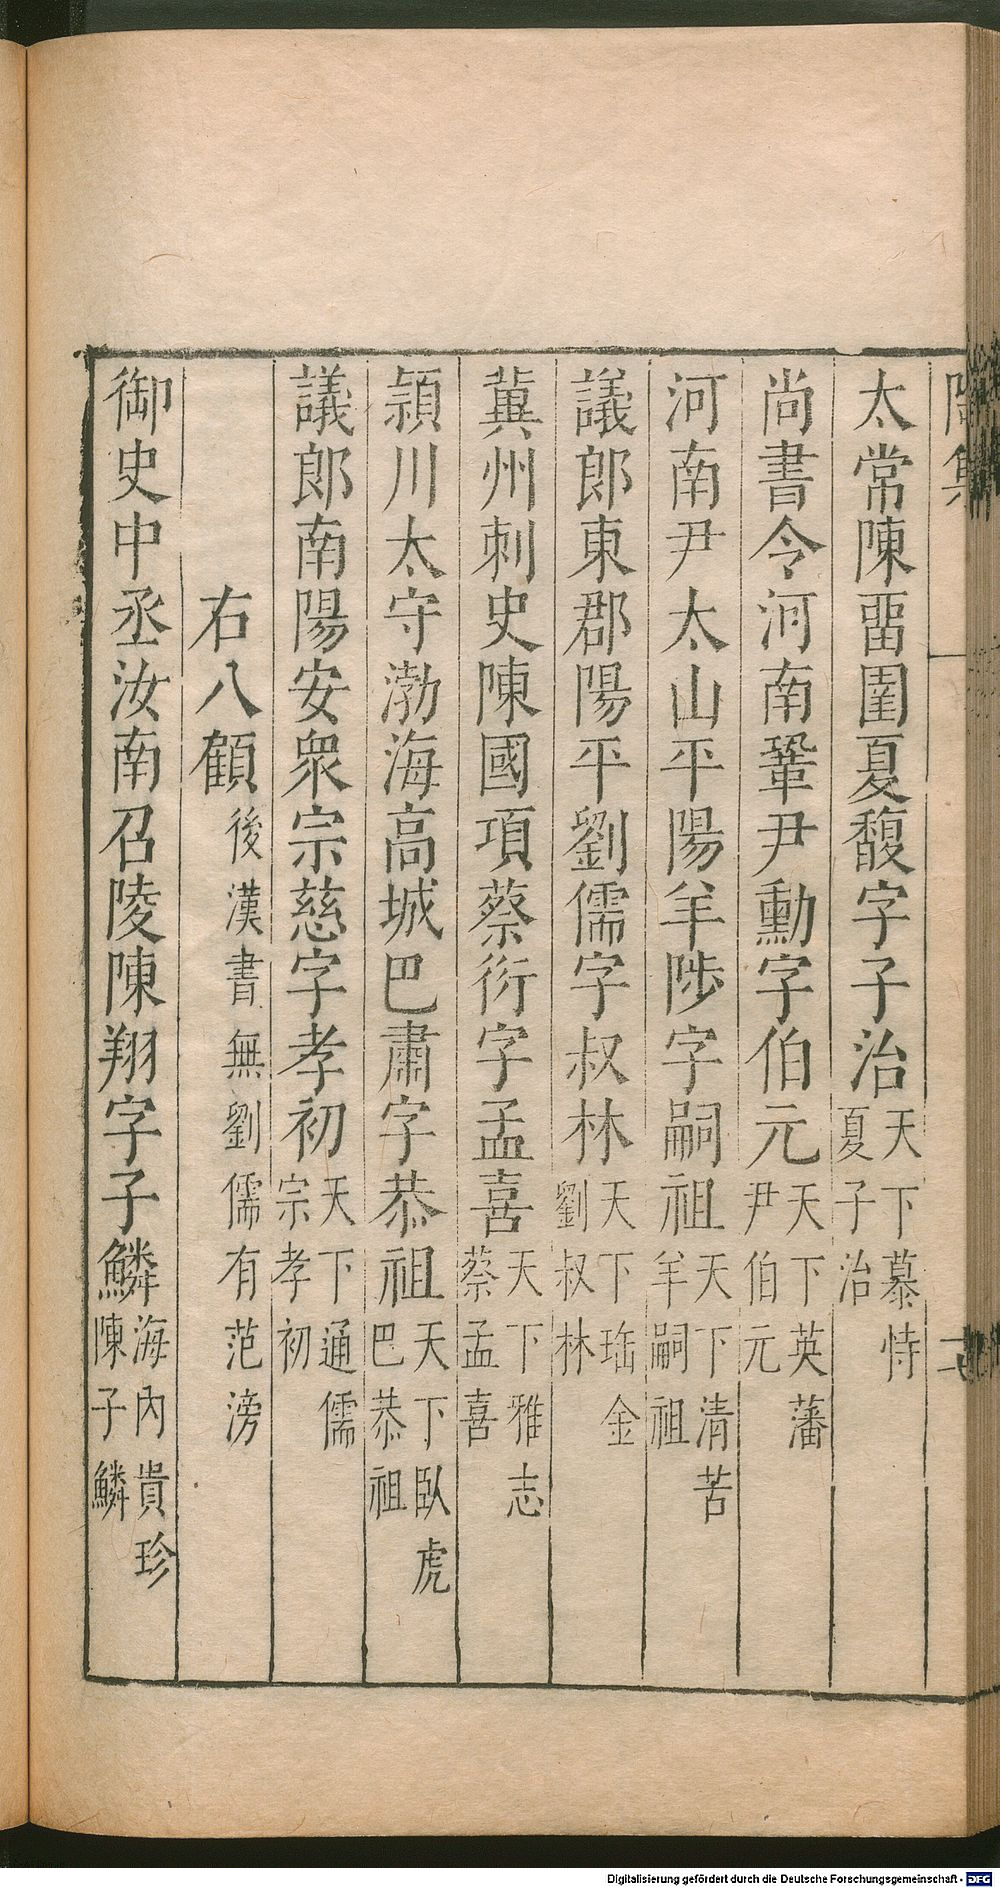 太常陳畱圉夏馥字子治天下慕恃夏子治
尚書令河南鞏尹勳字伯元天下英藩尹伯元
河南尹太山平陽羊陟字嗣祖天下清苦羊嗣祖
議郎東郡陽平劉儒字叔林天下珤金劉叔林
冀州刺史陳國項蔡衍字孟喜天下雅志蔡孟喜
潁川太守渤海高城巴肅字恭祖天下臥虎巴恭祖
議郎南陽安衆宗慈字孝初天下通儒宗孝初
右八顧後漢書無劉儒有范滂
御史中丞汝南召陵陳翔字子鱗海內貴珍陳子鱗
Digitalisierung gefördert durch die Deutsche Forschungsgemeinschaft - DFG